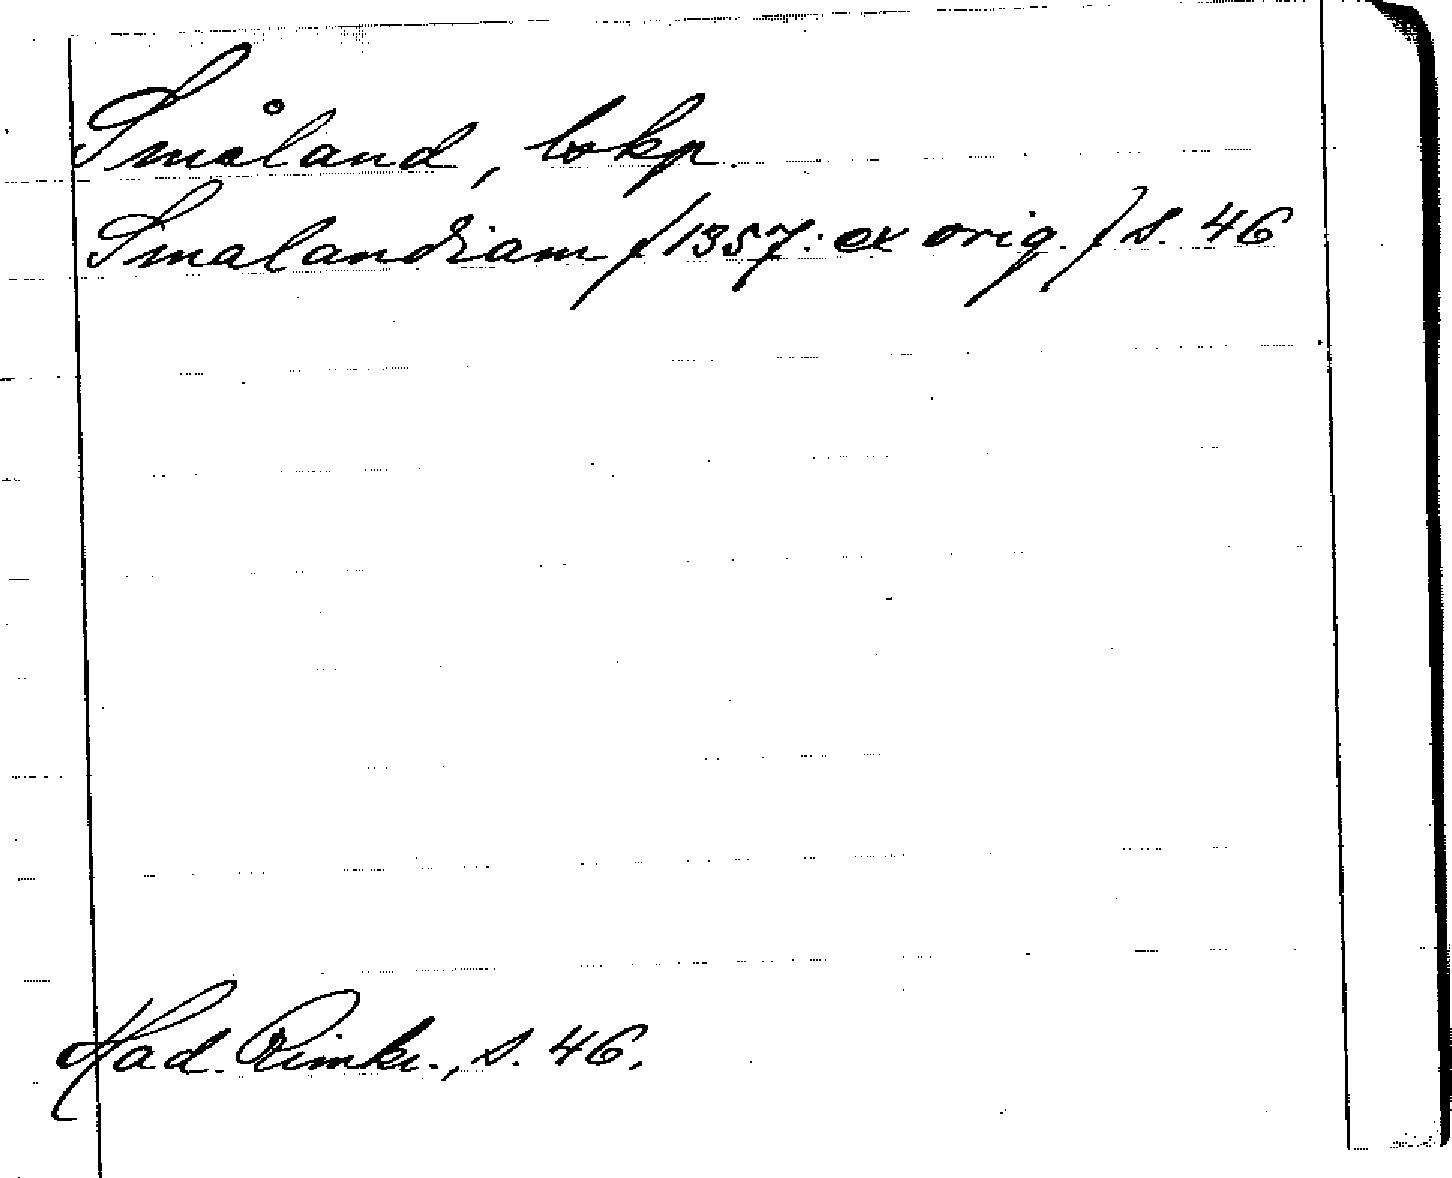 Småland, lbkp.
Smalandiam /1357: ex orig. / s. 46
Had. Rimkr., s. 46.